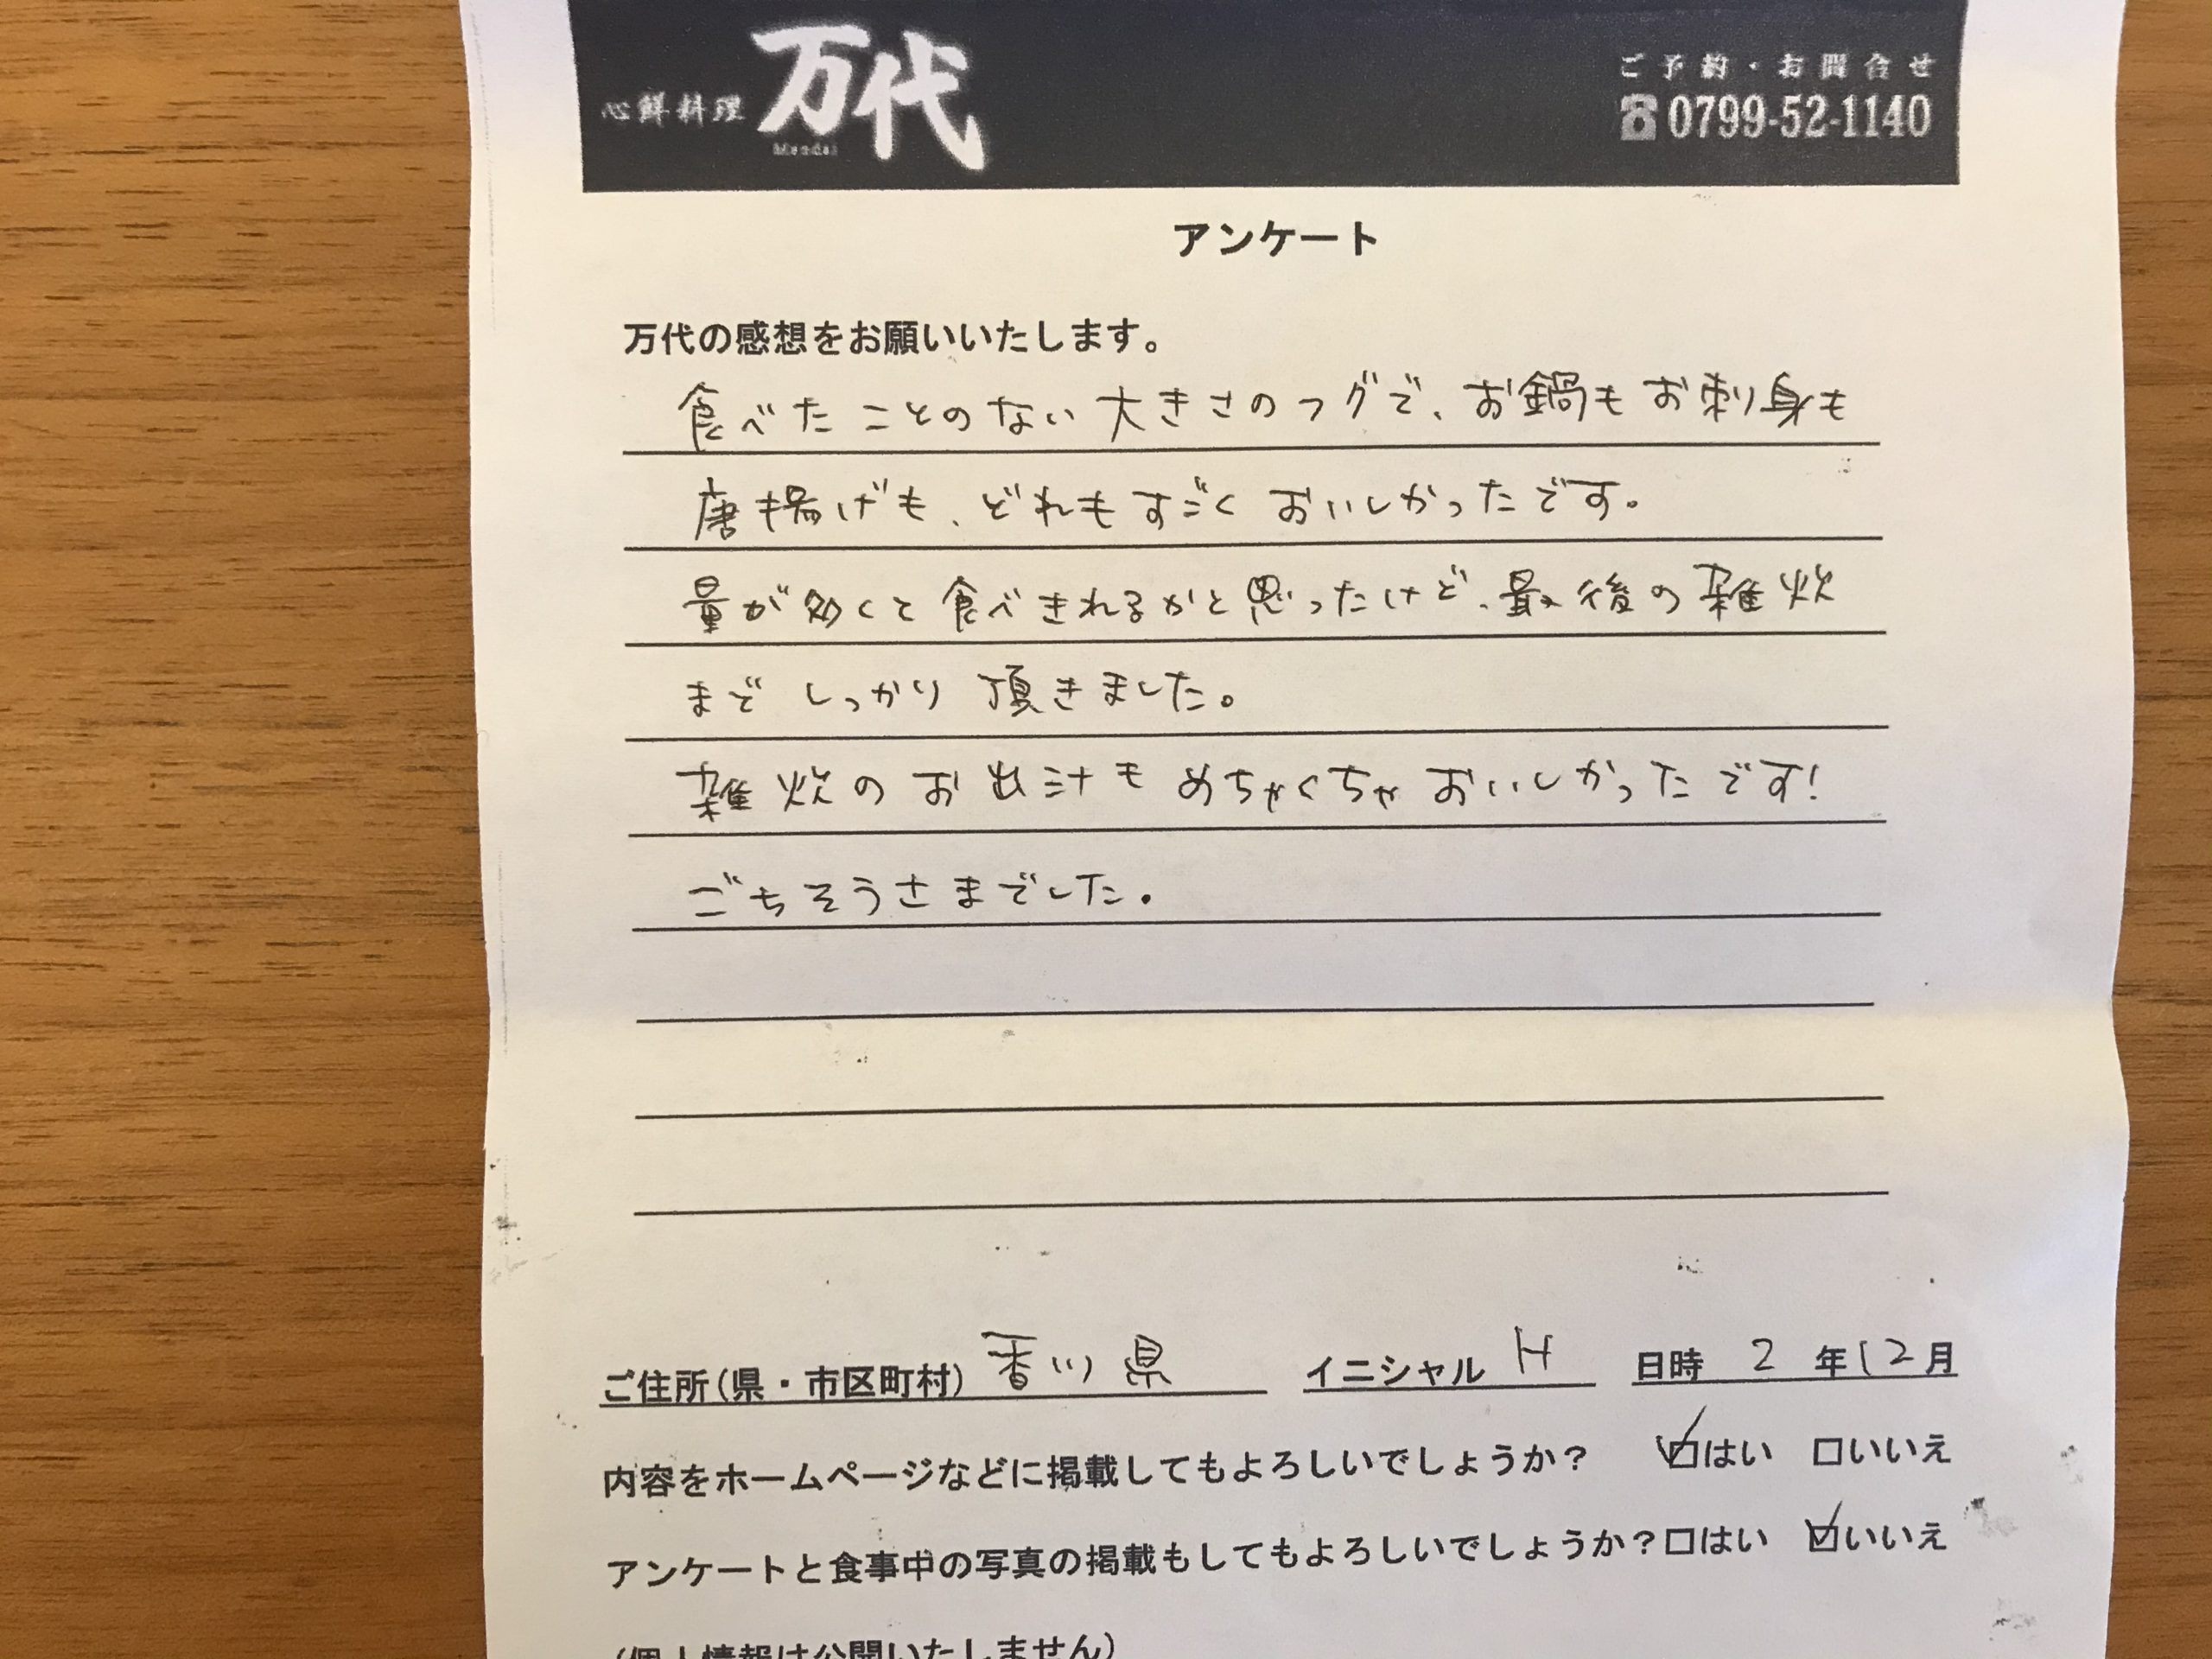 心鮮料理 万代
Mandai
ご予約・お問合せ
☎0799-52-1140
アンケート
万代の感想をお願いいたします。
食べたことのない大きさのフグで、お鍋もお刺身も
唐揚げも、どれもすごくおいしかったです。
量が多くと食べきれるかと思ったけど、最後の雑炊
までしっかり頂きました。
雑炊のお出汁もめちゃくちゃおいしかったです!
ごちそうさまでした。
ご住所(県・市区町村) 香川県 イニシャル H 日時 2 年12月
内容をホームページなどに掲載してもよろしいでしょうか? ☑はい □いいえ
アンケートと食事中の写真の掲載もしてもよろしいでしょうか?□はい ☑いいえ
(個人情報は公開いたしません)